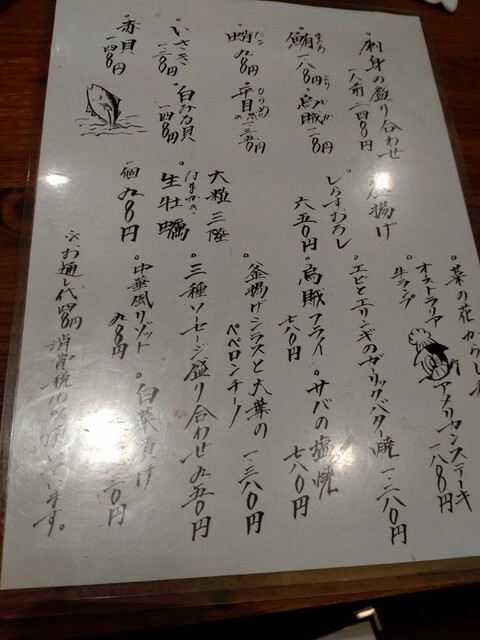 刺身の盛り合わせ
一人前 二四八〇円
鮪 まぐろ 一八〇円
烏賊 いか
蛸 たこ 九八〇円
平目 ひらめ 一三八〇円
いさき 一二八〇円
白みる貝 一四八〇円
赤貝 一四八〇円
釜揚げ
しらすおろし
六五〇円
大粒 三陸
生牡蠣
一個 九八〇円
菜の花からし
オーストラリア
牛ランプ アメリカンステーキ
一八八〇円
エビとエリンギのガーリックバター焼 一、二八〇円
烏賊フライ 七八〇円
サバの塩焼 七八〇円
釜揚げシラスと大葉の
ペペロンチーノ 一三八〇円
三種ソーセージ盛り合わせ 九五〇円
中華風リゾット 九八〇円
白菜漬け
※お通し代 円 消費税10%頂いています。